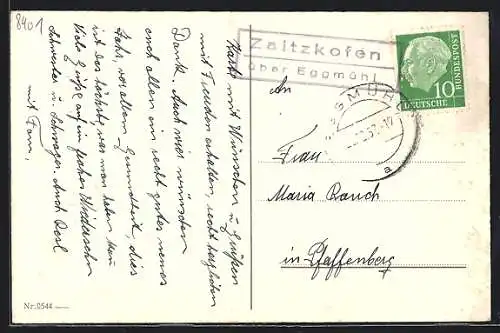 8401
Karte mit Wünschen u. Grüßen
mit Freuden erhalten, recht herzlichen
Dank. Auch wir wünschen
euch allen ein recht gutes neues
Jahr, vor allem Gesundheit, dies
ist das höchste, was man haben kann
Viele Grüße auf ein frohes Wiedersehn
Schwester u. Schwager. Auch Resl
mit Fam.
Nr. 0544
Zaitzkofen
über Eggmühl
EGGMÜHL
DEUTSCHE
BUNDESPOST
10
An
Frau
Maria Rauch
in Pfaffenberg